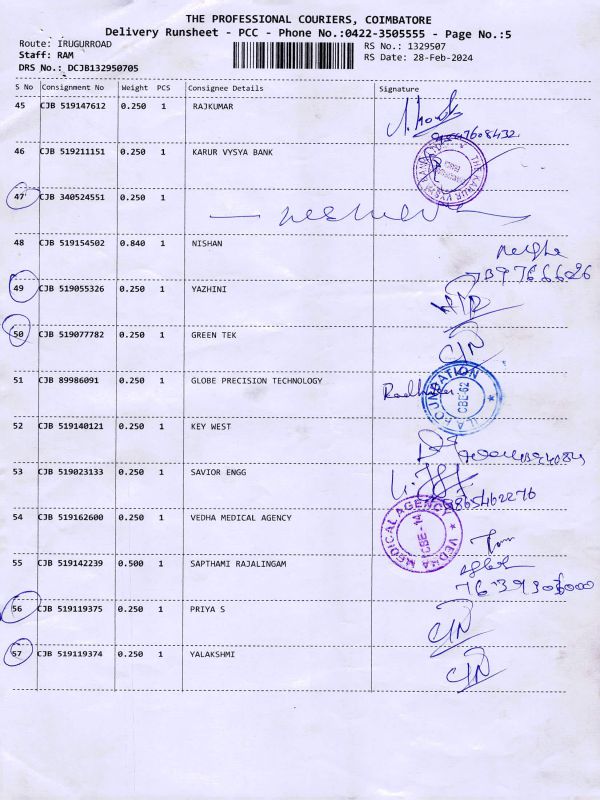 THE PROFESSIONAL COURIERS, COIMBATORE
Delivery Runsheet - PCC - Phone No.:0422-3505555 - Page No.:5
Route: IRUGURROAD
RS No.: 1329507
Staff: RAM
RS Date: 28-Feb-2024
DRS No.: DCJB132950705
S No Consignment No Weight PCS Consignee Details Signature
45 CJB 519147612 0.250 1 RAJKUMAR
46 CJB 519211151 0.250 1 KARUR VYSYA BANK
THE KARUR VYSYA BANK
47 CJB 340524551 0.250 1
48 CJB 519154502 0.840 1 NISHAN
49 CJB 519055326 0.250 1 YAZHINI
50 CJB 519077782 0.250 1 GREEN TEK
51 CJB 89986091 0.250 1 GLOBE PRECISION TECHNOLOGY
FOUNDATION
CBE-62
52 CJB 519140121 0.250 1 KEY WEST
53 CJB 519023133 0.250 1 SAVIOR ENGG
8865462276
54 CJB 519162600 0.250 1 VEDHA MEDICAL AGENCY
VEDHA MEDICAL AGENCY
CBE-14
55 CJB 519142239 0.500 1 SAPTHAMI RAJALINGAM
56 CJB 519119375 0.250 1 PRIYA S
57 CJB 519119374 0.250 1 YALAKSHMI